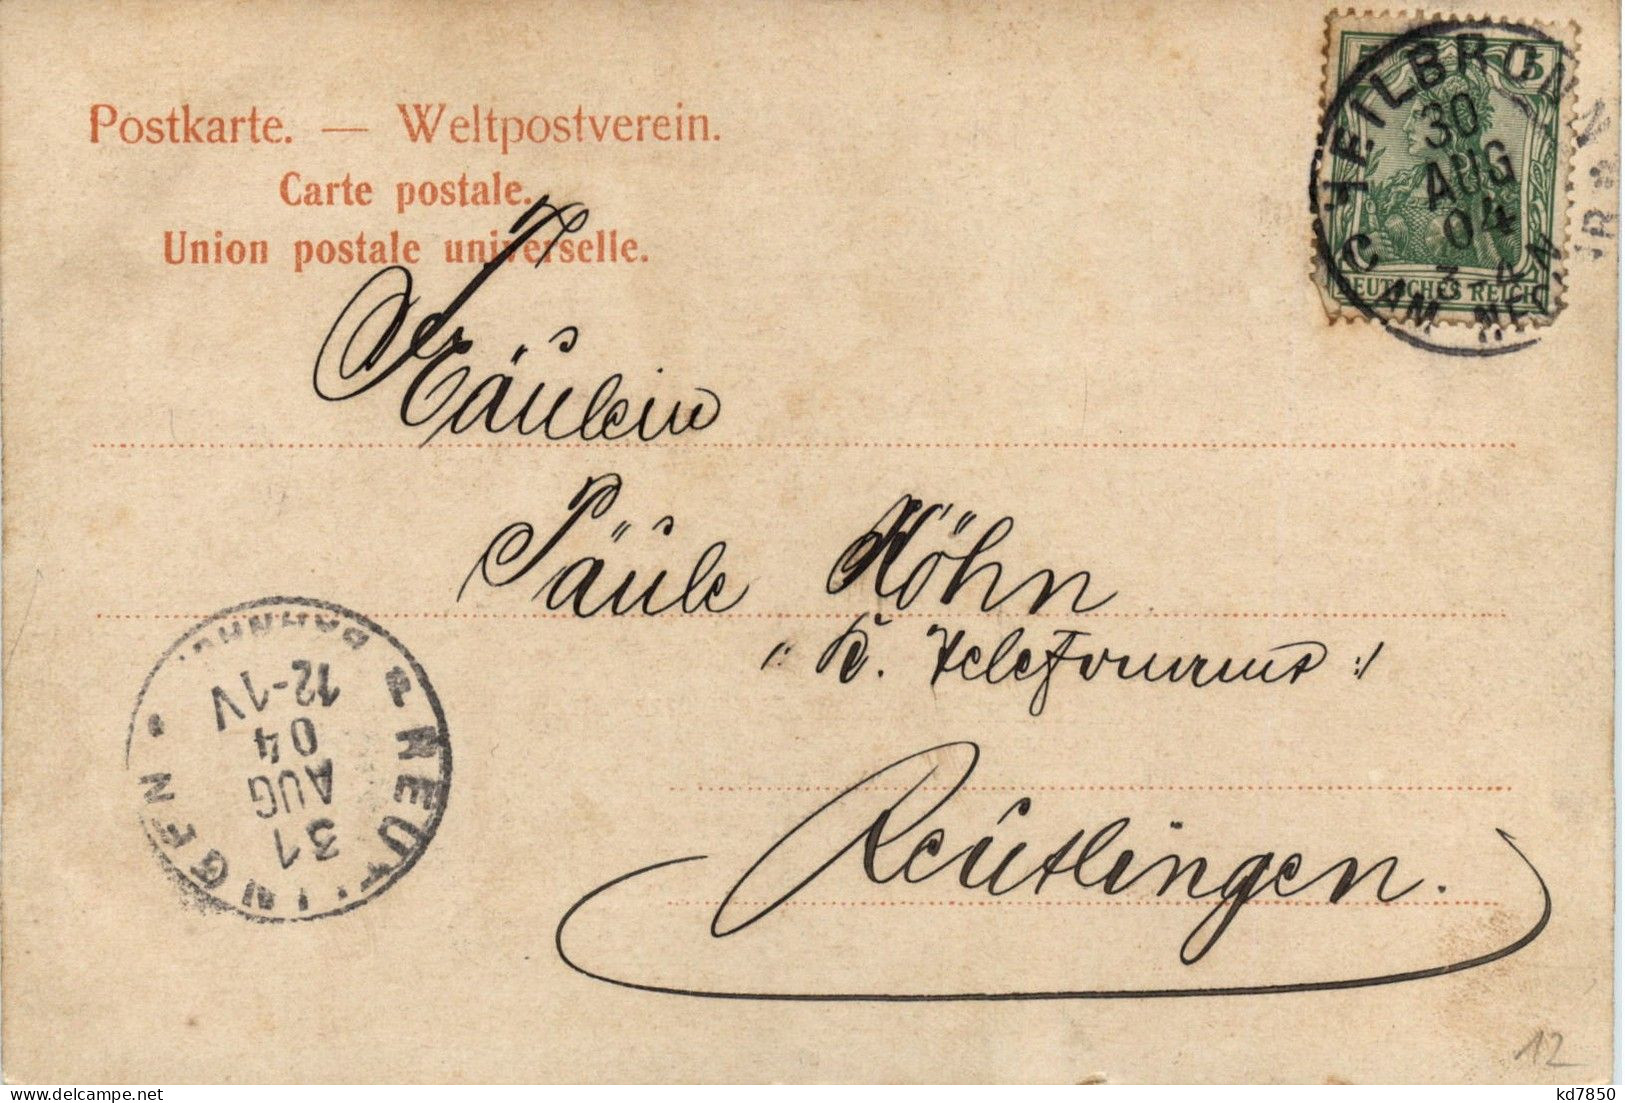 Postkarte. — Weltpostverein.
Carte postale.
Union postale universelle.
HEILBRONN
30
AUG
04
3-4
C AM NECKAR
5
DEUTSCHES REICH
Fräulein
Päule Höhn
Reutlingen.
REUTLINGEN
BAHNHOF
12-1V
04
AUG
31
12
kd7850